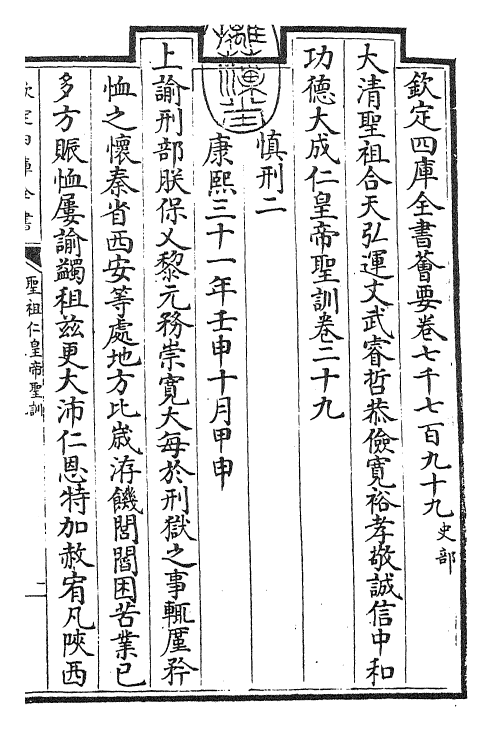 欽定四庫全書薈要卷七千七百九十九史部
大清聖祖合天弘運文武睿哲恭儉寬裕孝敬誠信中和
功德大成仁皇帝聖訓卷二十九
慎刑二
康熙三十一年壬申十月甲申
上諭刑部朕保乂黎元務崇寬大每於刑獄之事輒厪矜
恤之懷秦省西安等處地方比歲洊饑閭閻困苦業已
多方賑恤屢諭蠲租玆更大沛仁恩特加赦宥凡陝西
欽定四庫全書
聖祖仁皇帝聖訓